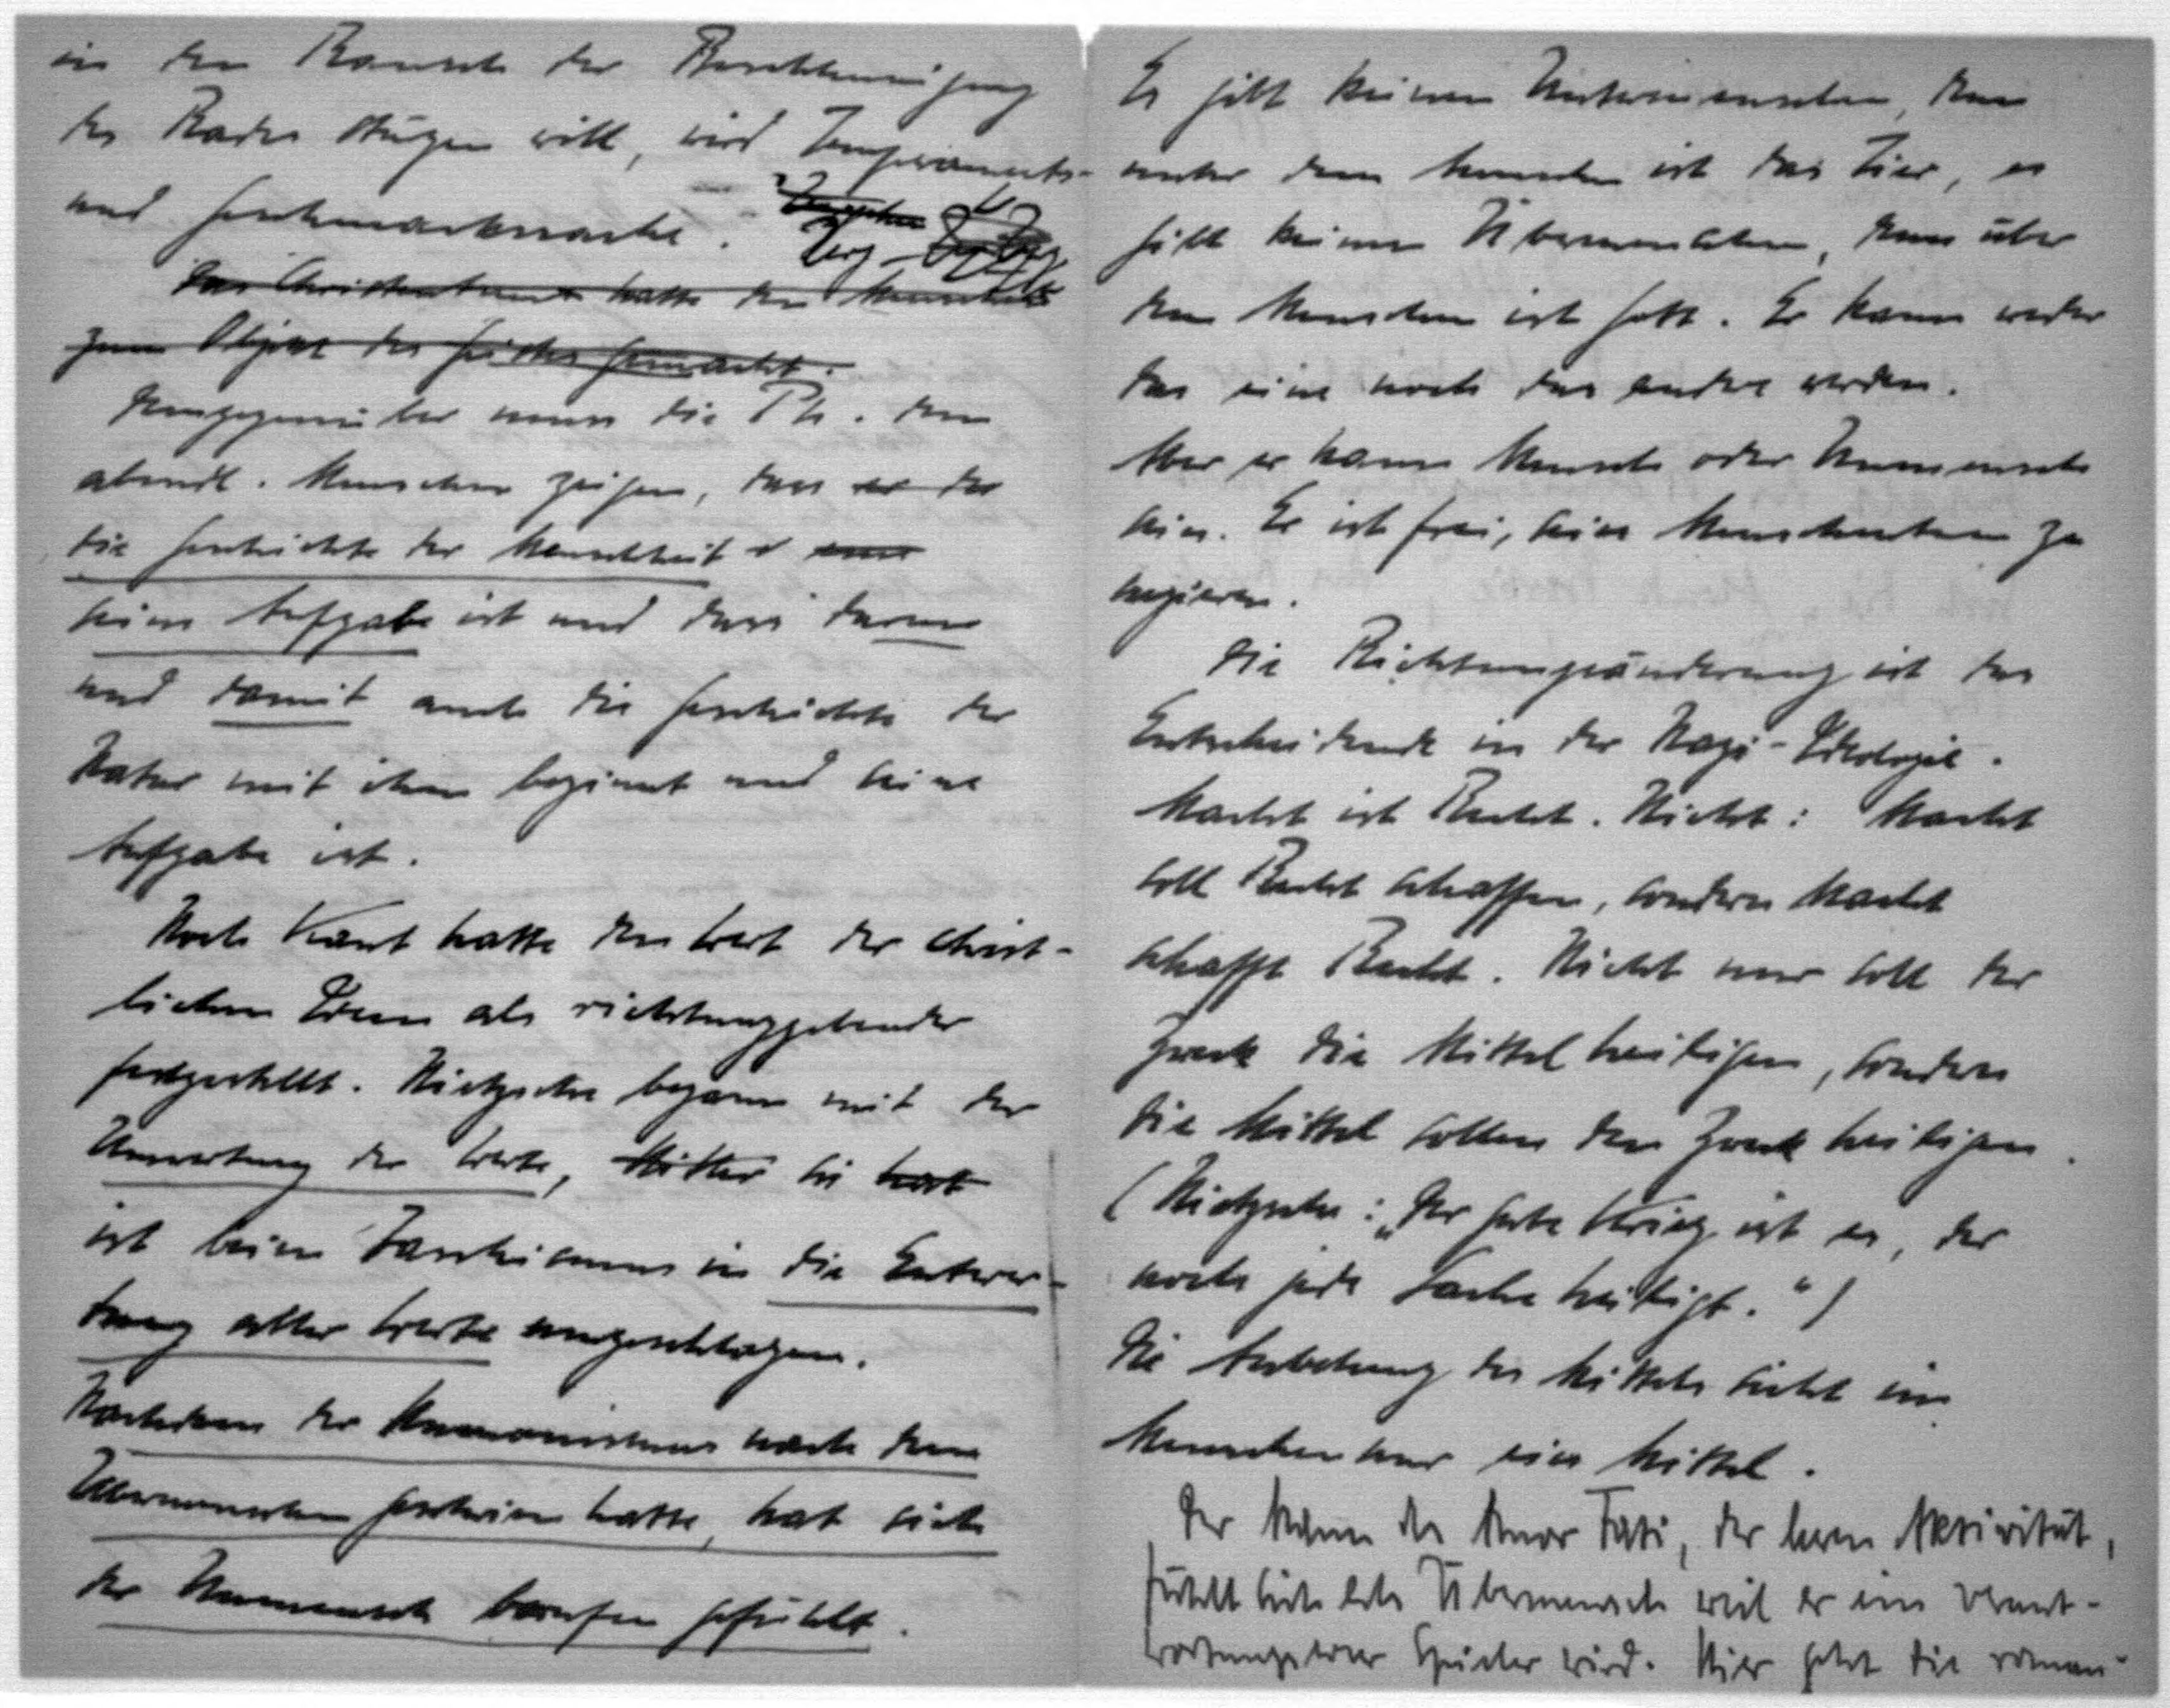 in den Rausch der Beschleunigung
des Rades steigen will, wird Temperaments-
und Geschmackssache.
Das Christentum hatte den Menschen
zum Objekt des gemacht.
Demgegenüber muss die Ph. dem
abendl. Menschen zeigen, dass er der
die Geschichte der Menschheit
seine Aufgabe ist und dass darum
und damit auch die Geschichte der
Natur mit ihm beginnt und seine
Aufgabe ist.
Noch Kant hatte den Wert der christ-
lichen Ideen als richtunggebender
festgestellt. Nietzsche begann mit der
Umwertung der Werte, Hitler
ist beim Faschismus in die Entwer-
tung aller Werte umgeschlagen.
Nachdem der Humanismus nach dem
Übermenschen geschrien hatte, hat sich
der Unmensch berufen gefühlt.
Es gibt keinen Untermenschen, denn
unter dem Menschen ist das Tier, es
gibt keinen Übermenschen, denn über
dem Menschen ist Gott. Er kann weder
das eine noch das andere werden.
Aber er kann Mensch oder Unmensch
sein. Er ist frei, sein Menschentum zu
negieren.
Die Richtungsänderung ist das
Entscheidende in der Nazi-Ideologie.
Macht ist Recht. Nicht: Macht
soll Recht schaffen, sondern Macht
schafft Recht. Nicht nur soll der
Zweck die Mittel heiligen, sondern
die Mittel sollen den Zweck heiligen.
(Nietzsche: „Der gute Krieg ist es, der
noch jede Sache heiligt.")
Die Anbetung des Mittels sieht im
Menschen nur ein Mittel.
Der Mann des Amor Fati, der leeren Aktivität,
fühlt sich als Übermensch weil er ein verant-
wortungsloser Spieler wird. Hier geht die roman-